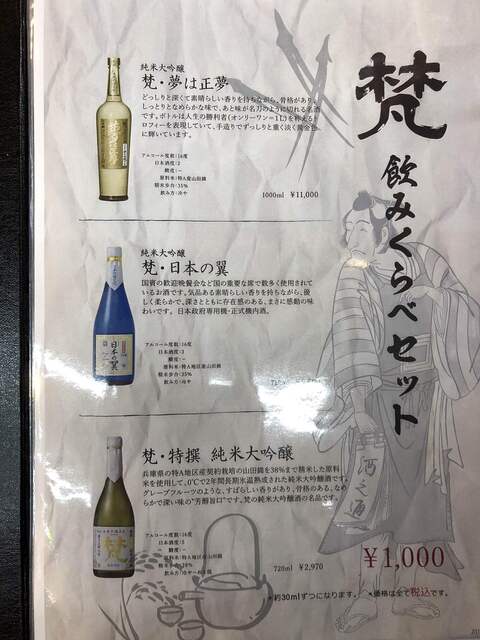 梵
飲みくらべセット
純米大吟醸
梵・夢は正夢
どっしりと深くて素晴らしい香りを持ちながら、骨格があり、
しっとりとなめらかな味で、あと味が名刀のように切れる名酒
です。ボトルは人生の勝利者(オンリーワン=1L)を称えるト
ロフィーを表現していて、手造りでずっしりと重く淡く黄金色
に輝いています。
アルコール度数:16度
日本酒度:2
酸度:ー
原料米:特A産山田錦
精米歩合:35%
飲み方:冷や
1000ml ¥11,000
純米大吟醸
梵・日本の翼
国賓の歓迎晩餐会など国の重要な席で数多く使用されて
いるお酒です。気品ある素晴らしい香りを持ちながら、優
しく柔らかで、深さとともに存在感のある、まさに感動の味
わいです。日本政府専用機・正式機内酒。
アルコール度数:16度
日本酒度:3
酸度:ー
原料米:特A地区産山田錦
精米歩合:35%
飲み方:冷や
梵・特撰 純米大吟醸
兵庫県の特A地区産契約栽培の山田錦を38%まで精米した原料
米を使用して、0℃で2年間長期氷温熟成された純米大吟醸酒です。
グレープフルーツのような、すばらしい香りがあり、骨格のある、なめ
らかで深い味の"芳醇旨口"です。梵の純米大吟醸酒の名品です。
アルコール度数:16度
日本酒度:3
酸度:ー
原料米:特A地区産山田錦
720ml ¥2,970
酒之酒
¥1,000
・約30mlずつになります。
・価格は全て税込です。